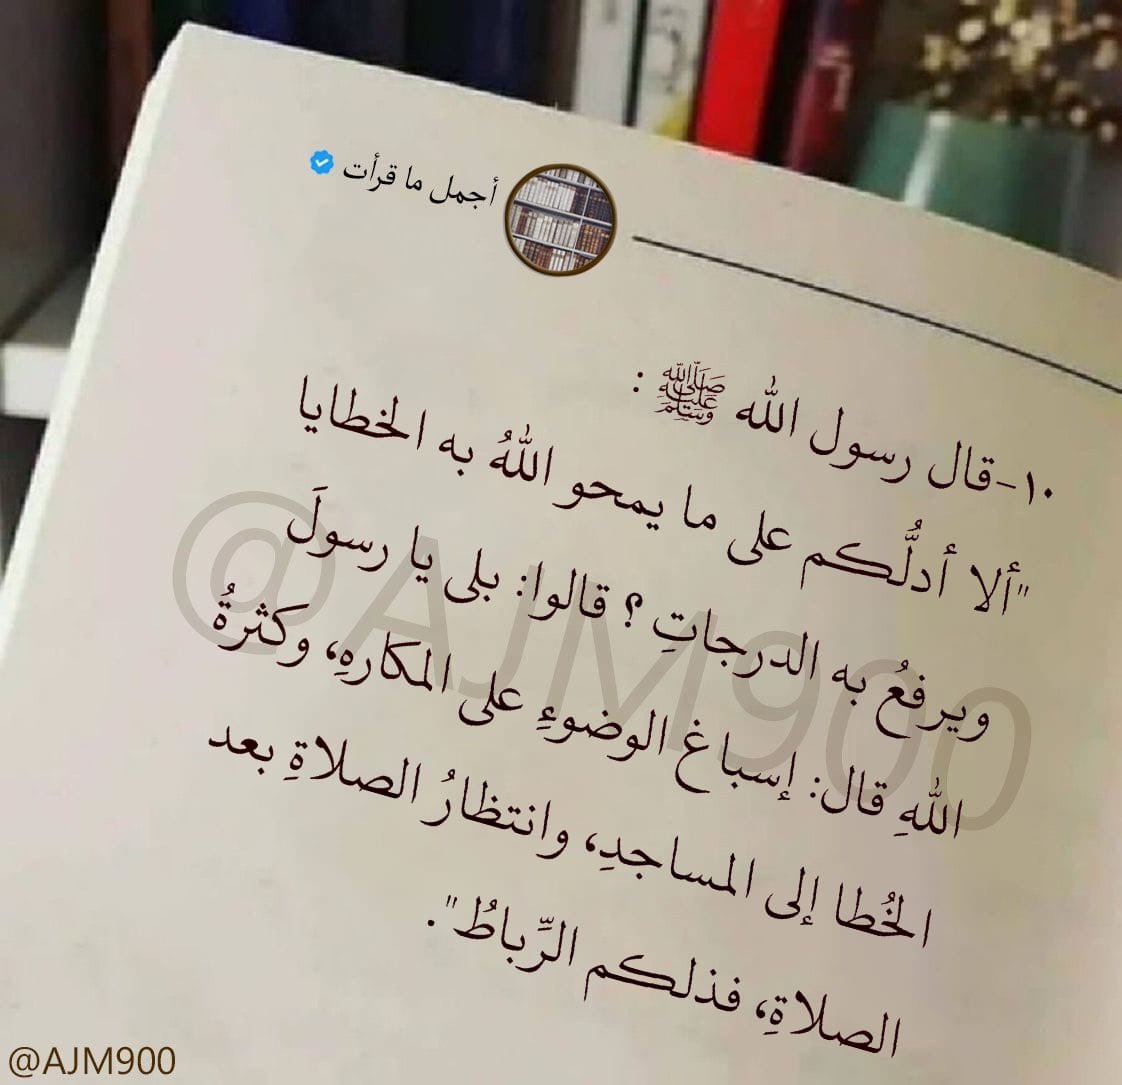 أجمل ما قرأت
١٠-قال رسول الله ﷺ :
"ألا أدلُّكم على ما يمحو اللهُ به الخطايا
ويرفعُ به الدرجاتِ ؟ قالوا: بلى يا رسولَ
اللهِ قال: إسباغ الوضوءِ على المكارهِ، وكثرةُ
الخُطا إلى المساجدِ، وانتظارُ الصلاةِ بعد
الصلاةِ، فذلكم الرِّباطُ".
@AJM900
@AJM900